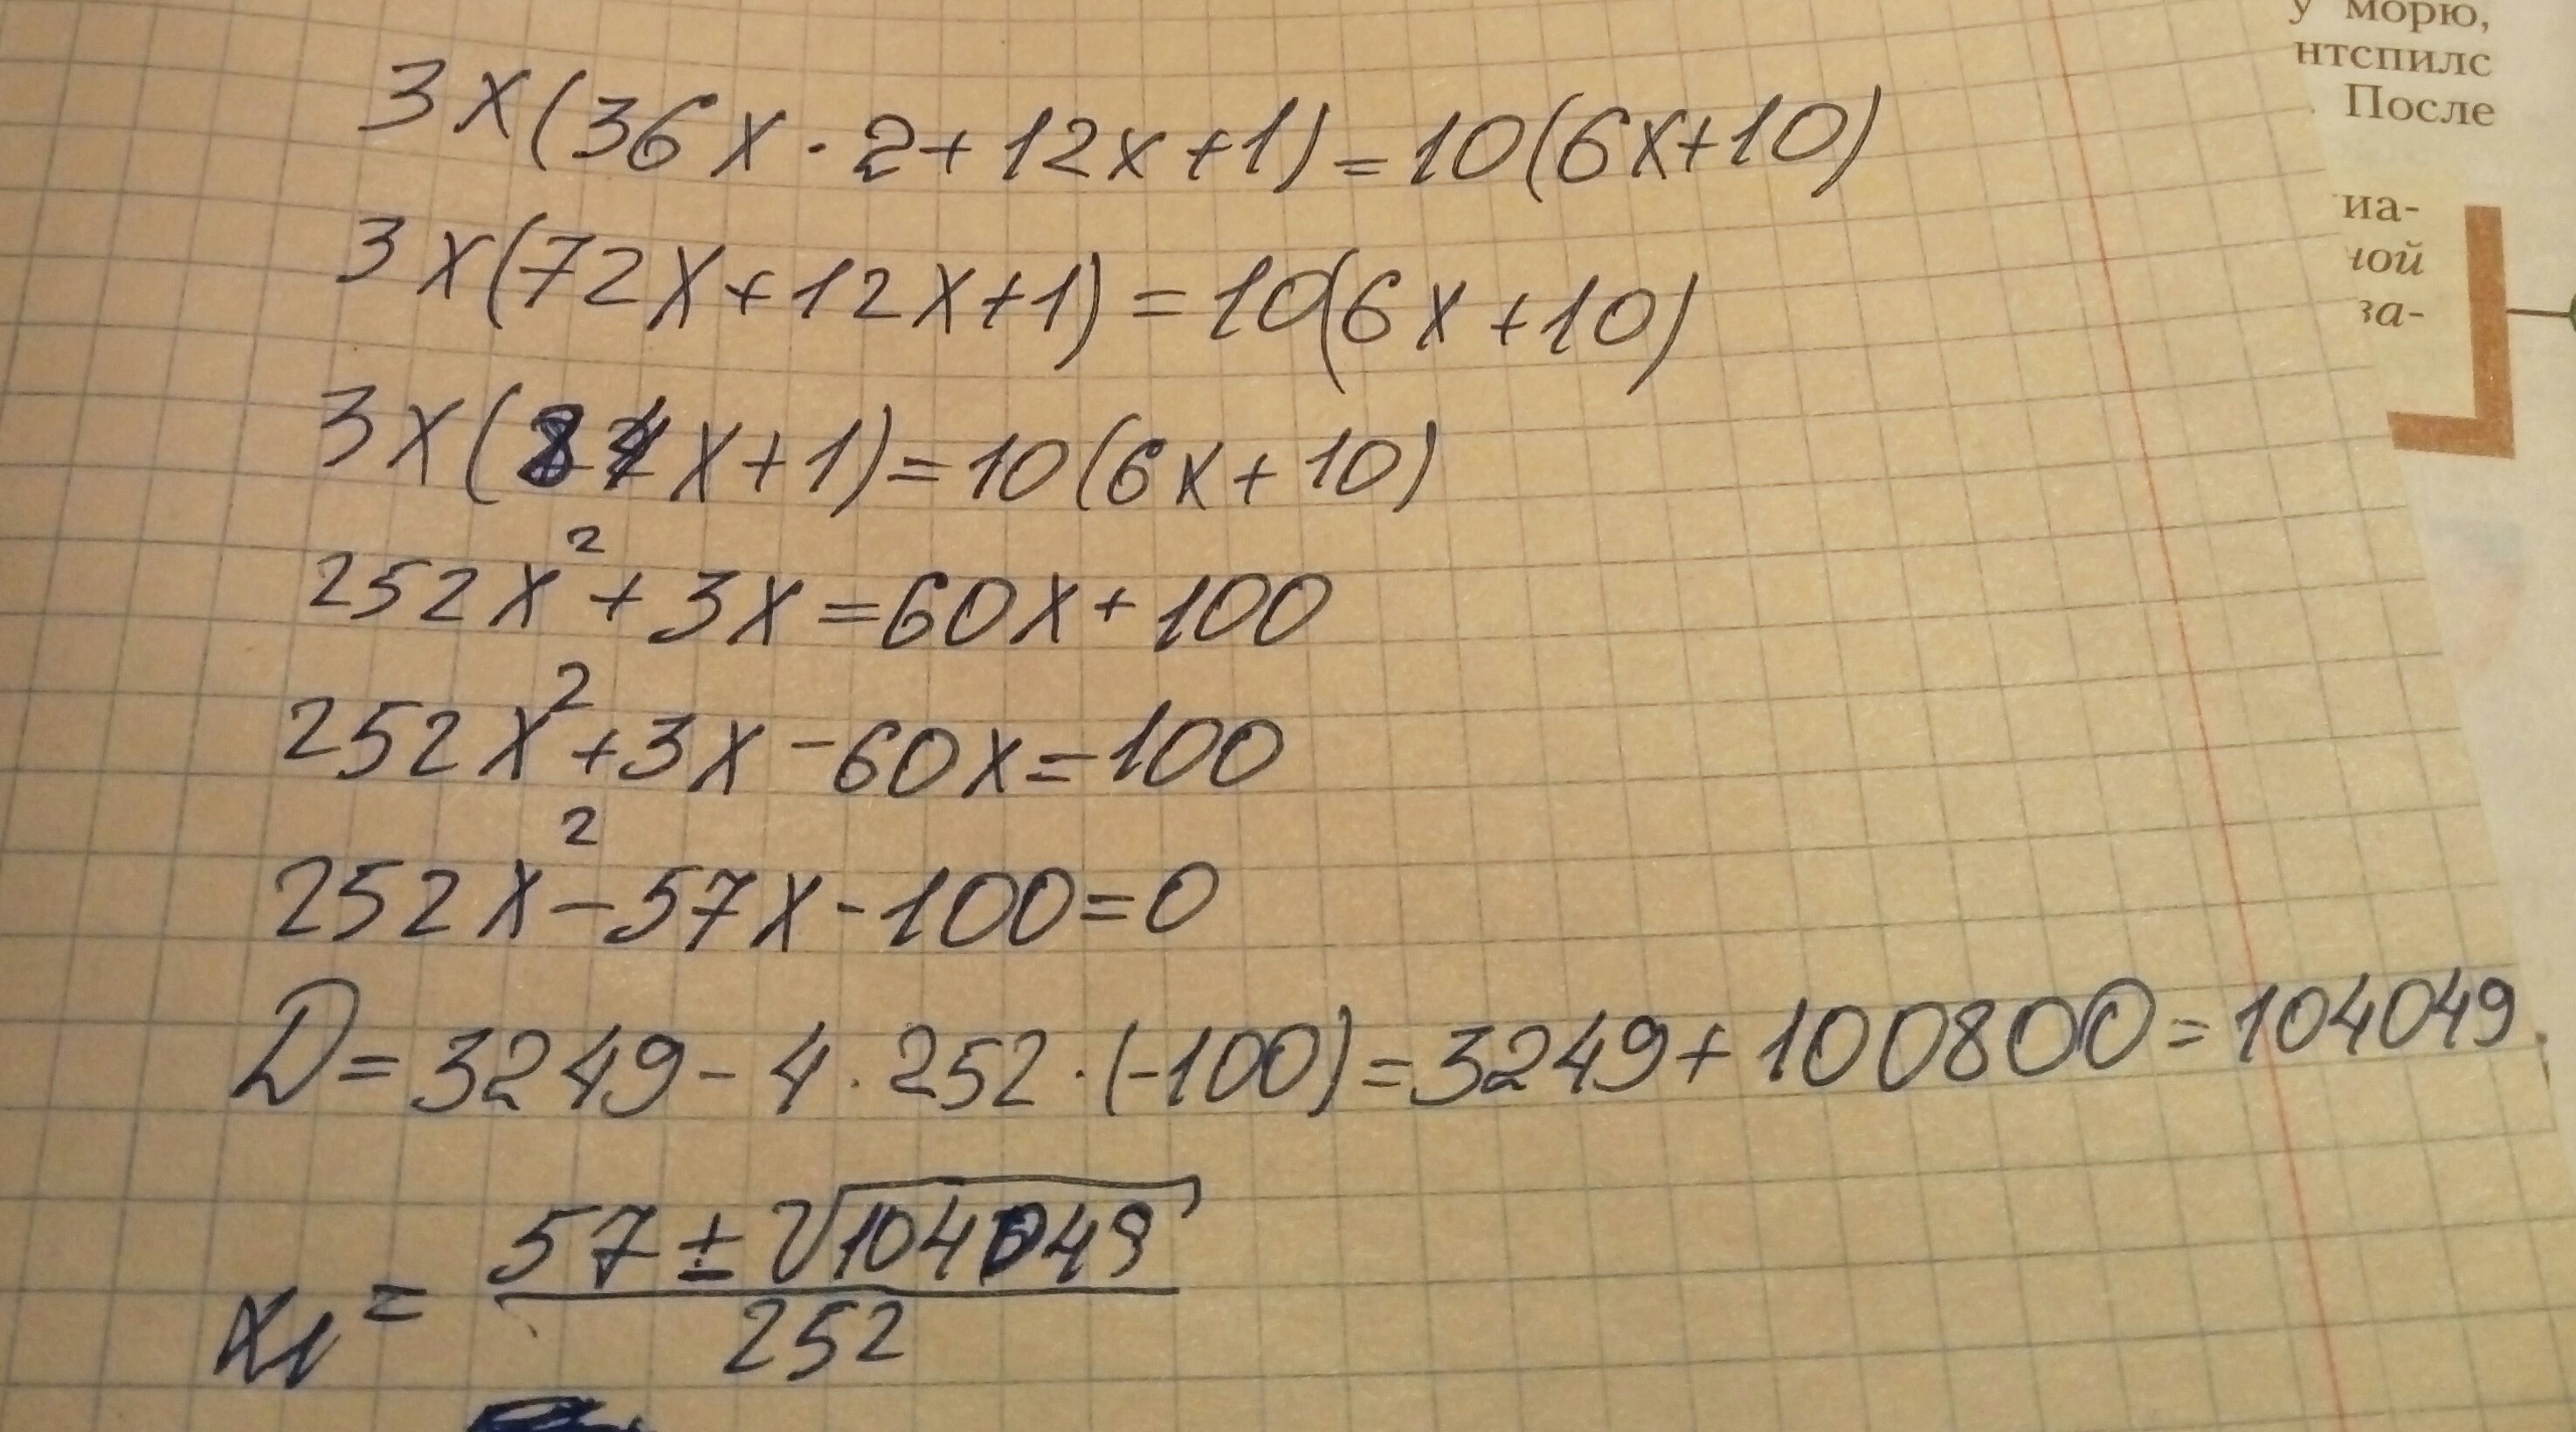 у морю,
нтспилс
После
иа-
ной
за-
3x(36x · 2 + 12x + 1) = 10(6x + 10)
3x(72x + 12x + 1) = 10(6x + 10)
3x(84x + 1) = 10(6x + 10)
252x² + 3x = 60x + 100
252x² + 3x - 60x = 100
252x² - 57x - 100 = 0
D = 3249 - 4 · 252 · (-100) = 3249 + 100800 = 104049
x₁ = (57 ± √104049) / 252